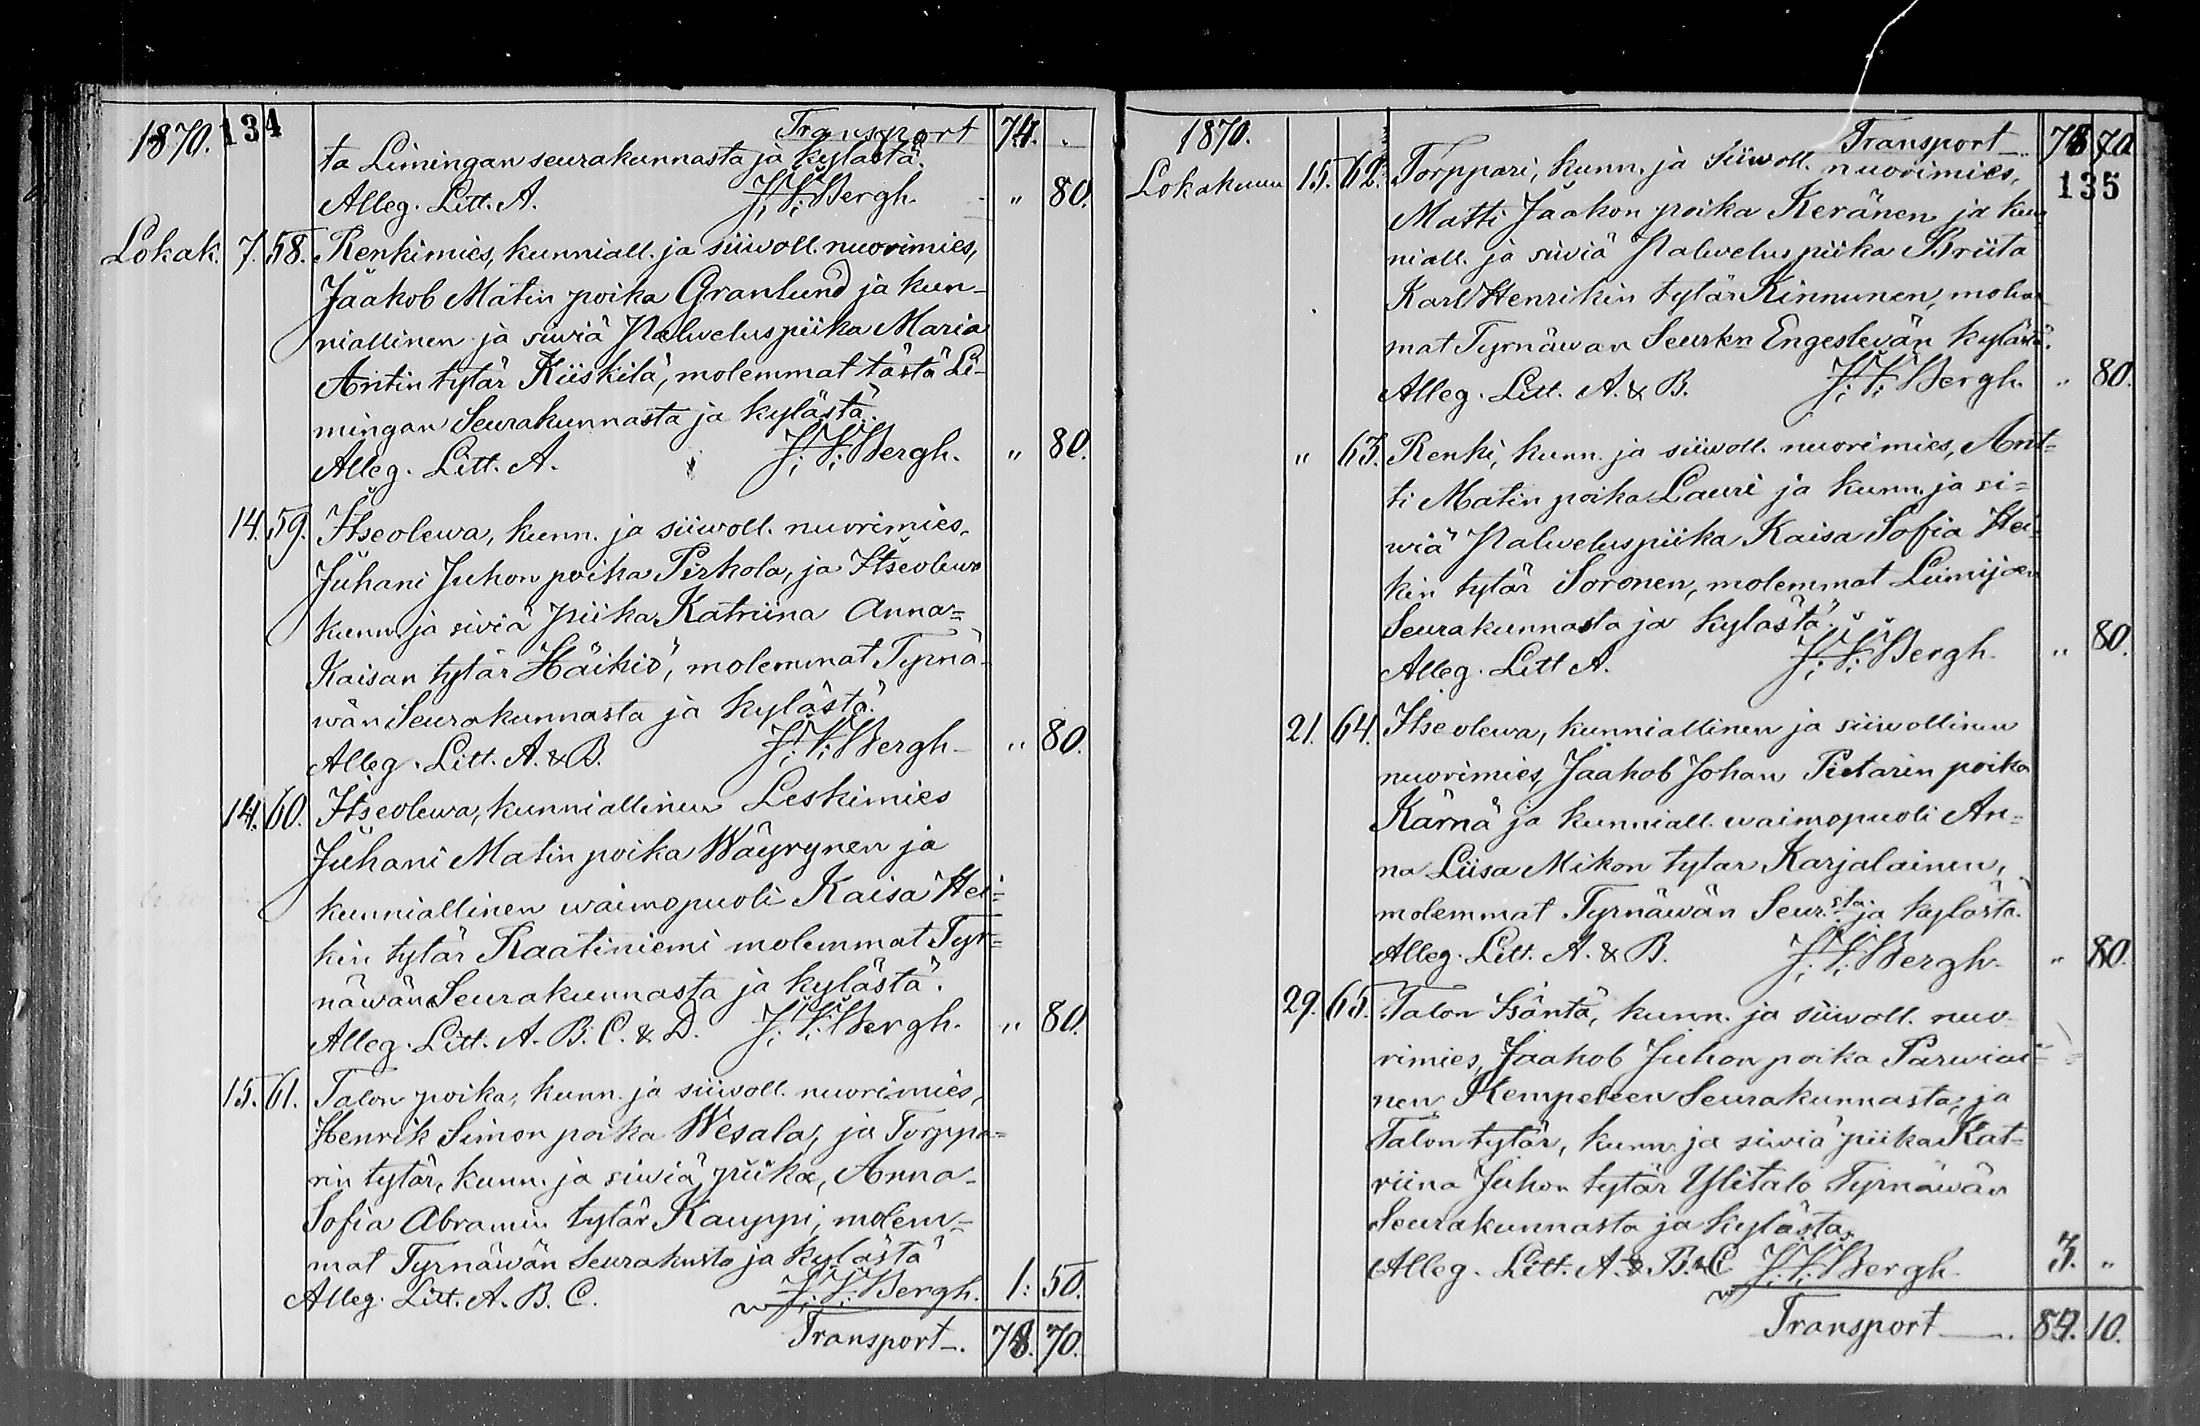 1870. 134 Transport 74. .
ta Limingan seurakunnasta ja kylästä.
Alleg. Litt. A. J. V. Bergh. " 80.
Lokak. 7. 58. Renkimies, kunniall. ja siiwoll. nuorimies,
Jaakob Matin poika Granlund ja kun-
niallinen ja siwiä Palveluspiika Maria
Antin tytär Kiiskilä, molemmat tästä Li-
mingan Seurakunnasta ja kylästä.
Alleg. Litt. A. J. V. Bergh. " 80.
14. 59. Itseolewa, kunn. ja siiwoll. nuorimies,
Juhani Juhon poika Pirkola, ja Itseolewa
kunn. ja siviä piika Katriina Anna=
Kaisan tytär Häikiö, molemmat Tyrnä-
wän Seurakunnasta ja kylästä.
Alleg. Litt. A. & B. J. V. Bergh - " 80.
14. 60. Itseolewa, kunniallinen Leskimies
Juhani Matin poika Wäyrynen ja
kunniallinen waimopuoli Kaisa Hei-
kin tytär Raatiniemi molemmat Tyr=
näwän Seurakunnasta ja kylästä.
Alleg. Litt. A. B. C. & D. J. V. Bergh. " 80.
15. 61. Talon poika, kunn. ja siiwoll. nuorimies,
Henrik Simon poika Wesala, ja Torppa=
rin tytär, kunn. ja siwiä piika, Anna-
Sofia Abramin tytär Kauppi, molem-
mat Tyrnäwän Seurakusta ja kylästä
Alleg. Litt. A. B. C. J. V. Bergh. 1: 50.
Transport -. 78. 70.
1870. Transport -. 78 70
135
Lokakuun 15. 62. Torppari, kunn. ja siiwoll. nuorimies,
Matti Jaakon poika Keränen ja kun
niall. ja siviä Palveluspiika Briita
Karl Henrikin tytär Kinnunen, molem
mat Tyrnäwan Seurkn Engeslevän kylästä.
Alleg. Litt. A. & B. J. V. Bergh. " 80.
" 63. Renki, kunn. ja siiwoll. nuorimies, Ant=
ti Matin poika Lauri ja kunn. ja si=
wiä Palveluspiika Kaisa Sofia Hei-
kin tytär Soronen, molemmat Liimijoen
Seurakunnasta ja kylästä.
Alleg. Litt A. J. V. Bergh. " 80.
21. 64. Itseolewa, kunniallinen ja siiwollinen
nuorimies, Jaakob Johan Pietarin poika
Kärnä ja kunniall. waimopuoli An=
na Liisa Mikon tytar Karjalainen,
molemmat Tyrnäwän Seur.sta ja kylästä.
Alleg. Litt. A. & B. J. V. Bergh. " 80.
29. 65. Talon Isäntä, kunn. ja siiwoll. nuo-
rimies, Jaakob Juhon poika Parwiai=
nen Kempeleen Seurakunnasta, ja
Talon tytär, kunn. ja siwiä piika Kat=
riina Juhon tytär Ylitalo Tyrnäwän
Seurakunnasta ja kylästä.
Alleg. Litt. A. & B. & C J. V. Bergh. 3. "
Transport -. 84. 10.